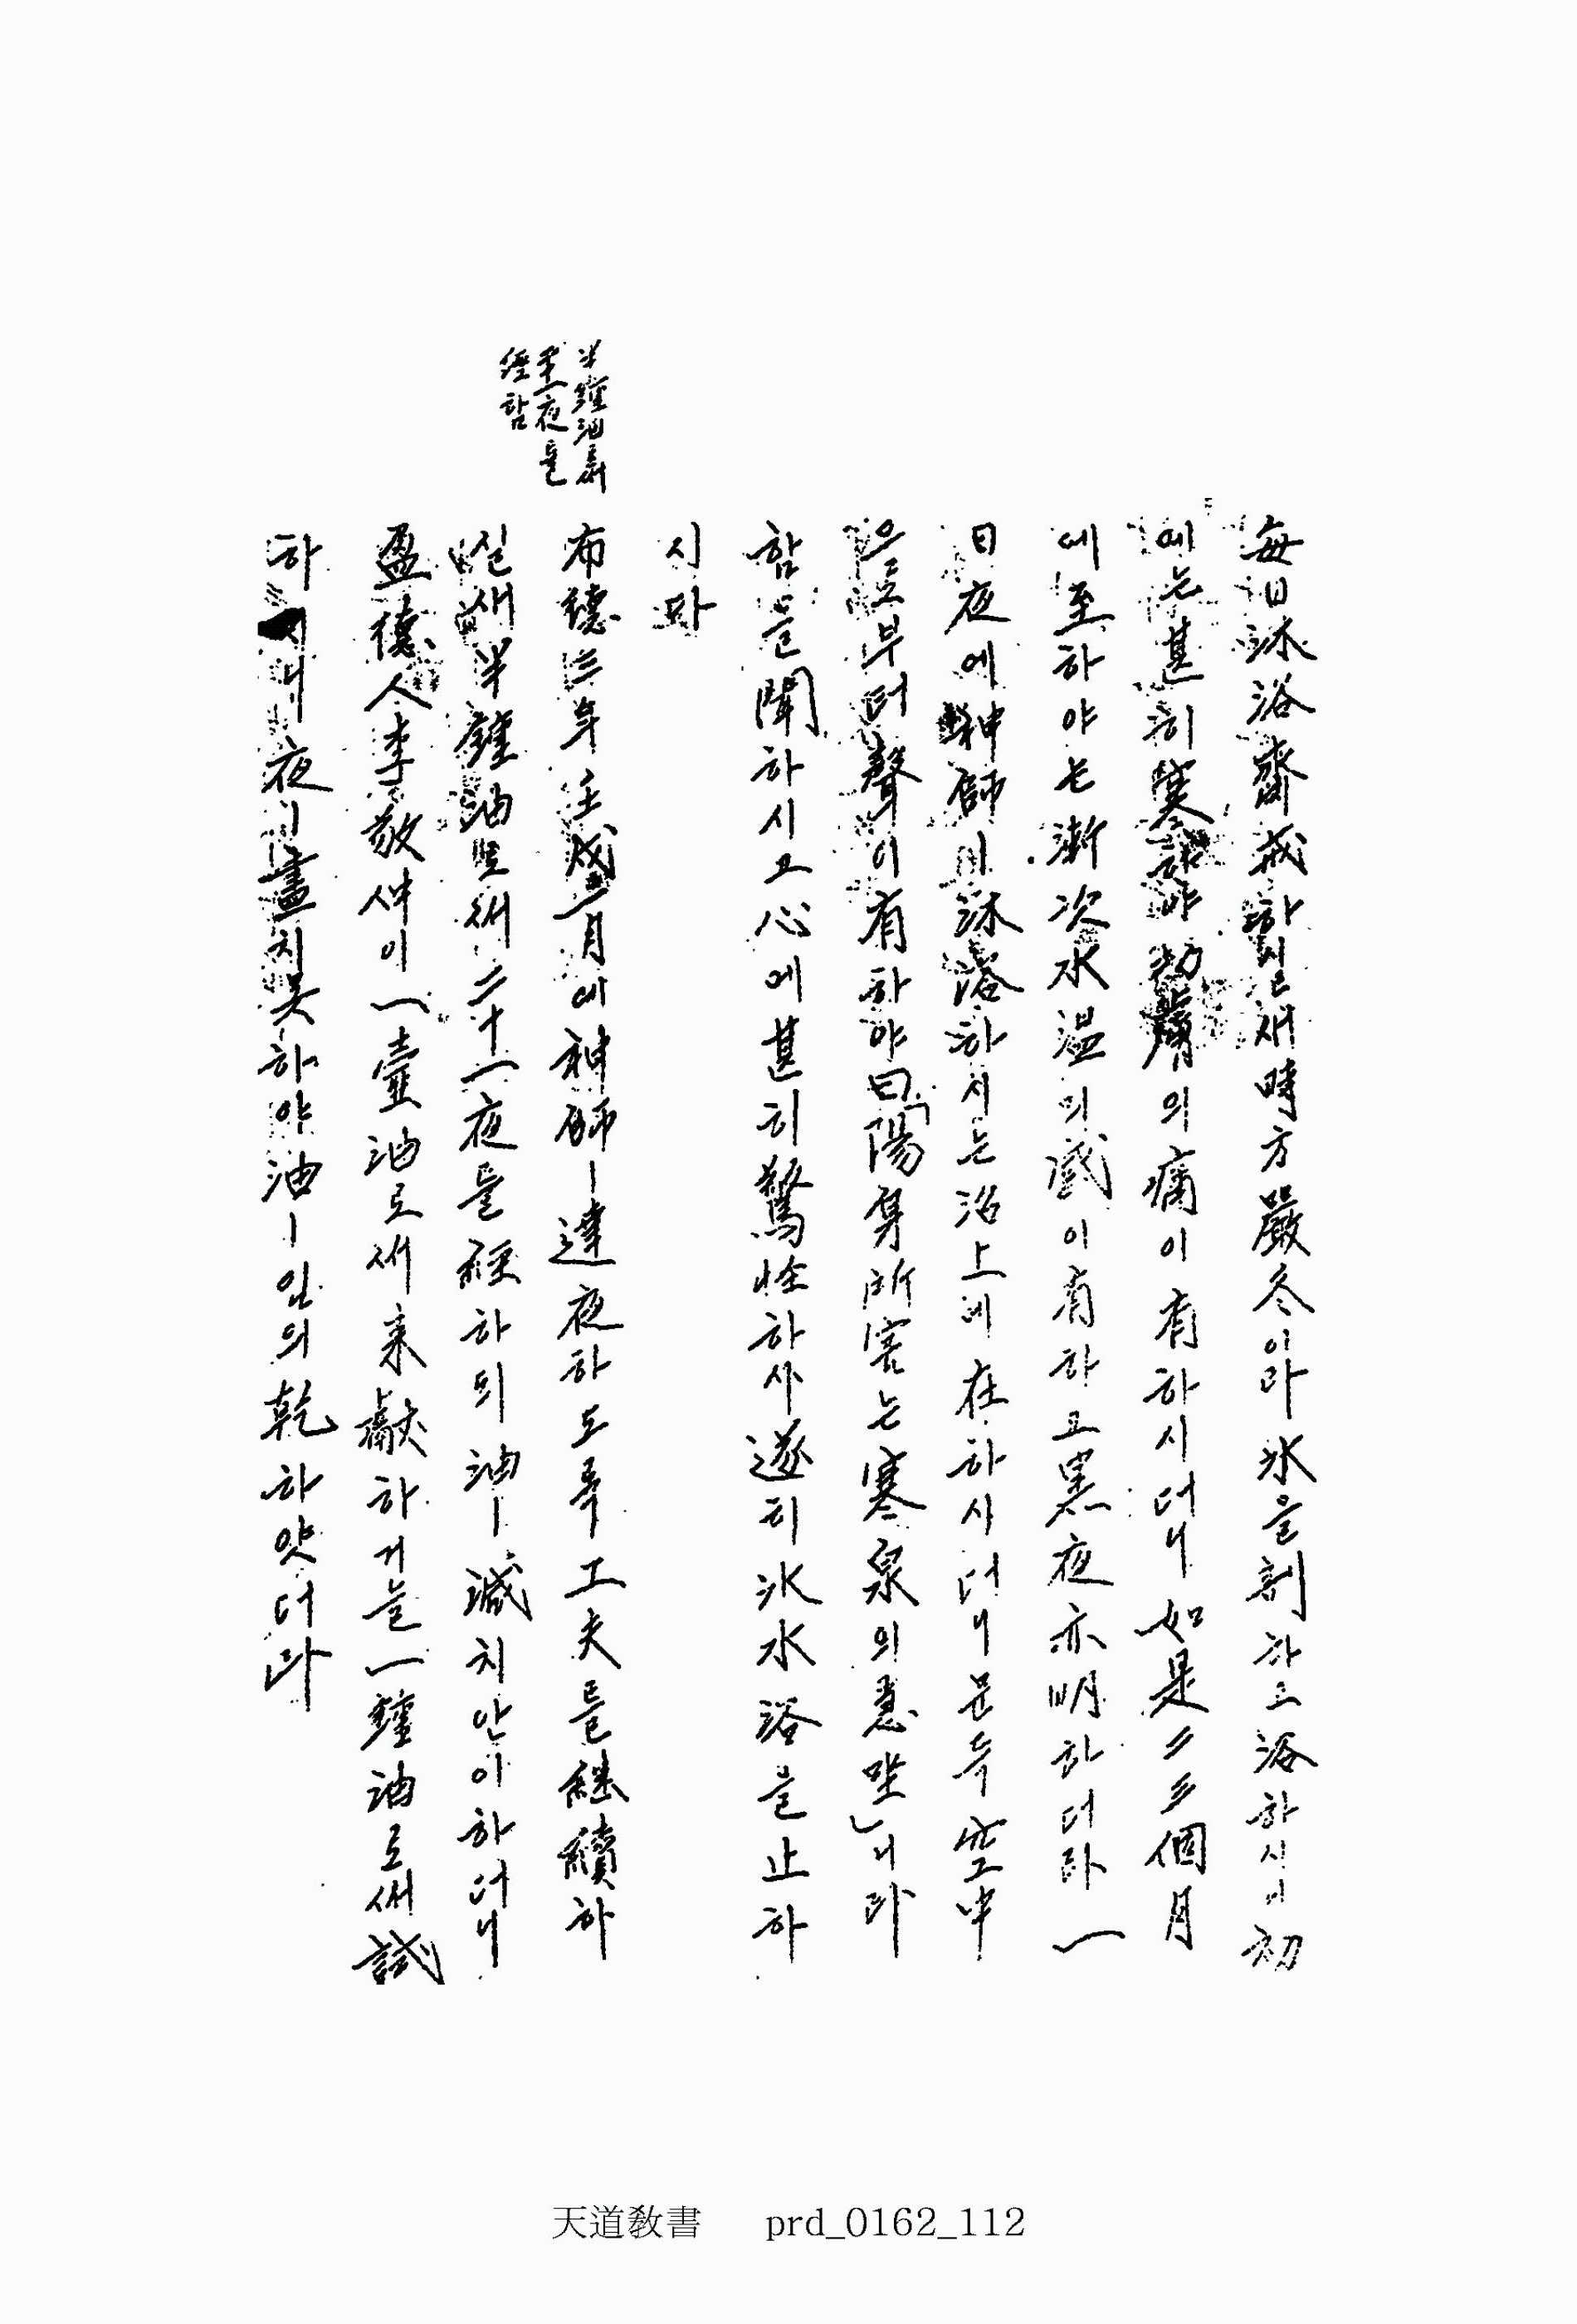 半鍾油로써
二十一夜를
經함
每日沐浴齋戒하실새 時方嚴冬이라 氷을 割하고 浴하시니 初
에는 甚히 寒하야 肌膚의 痛이 有하시더니 如是 三個月
에 至하야는 漸次 水溫의 感이 有하고 黑夜亦明하더라 一
日夜에 神師 沐浴하시는 沼上에 在하시더니 문득 空中
으로부터 聲이 有하야 曰「陽身所害는 寒泉의 急坐」니라
함을 聞하시고 心에 甚히 驚怪하사 遂히 氷水浴을 止하
시다
布德三年壬戌一月에 神師ㅣ達夜하도록 工夫를 繼續하
실새 半鍾油로써 二十一夜를 經하되 油ㅣ減치 안이하더니
盈德人 李敬仲이 一壺油로써 來獻하거늘 一鍾油로써 試
하 夜ㅣ盡치 못하야 油ㅣ임의 乾하얏더라
天道敎書 prd_0162_112